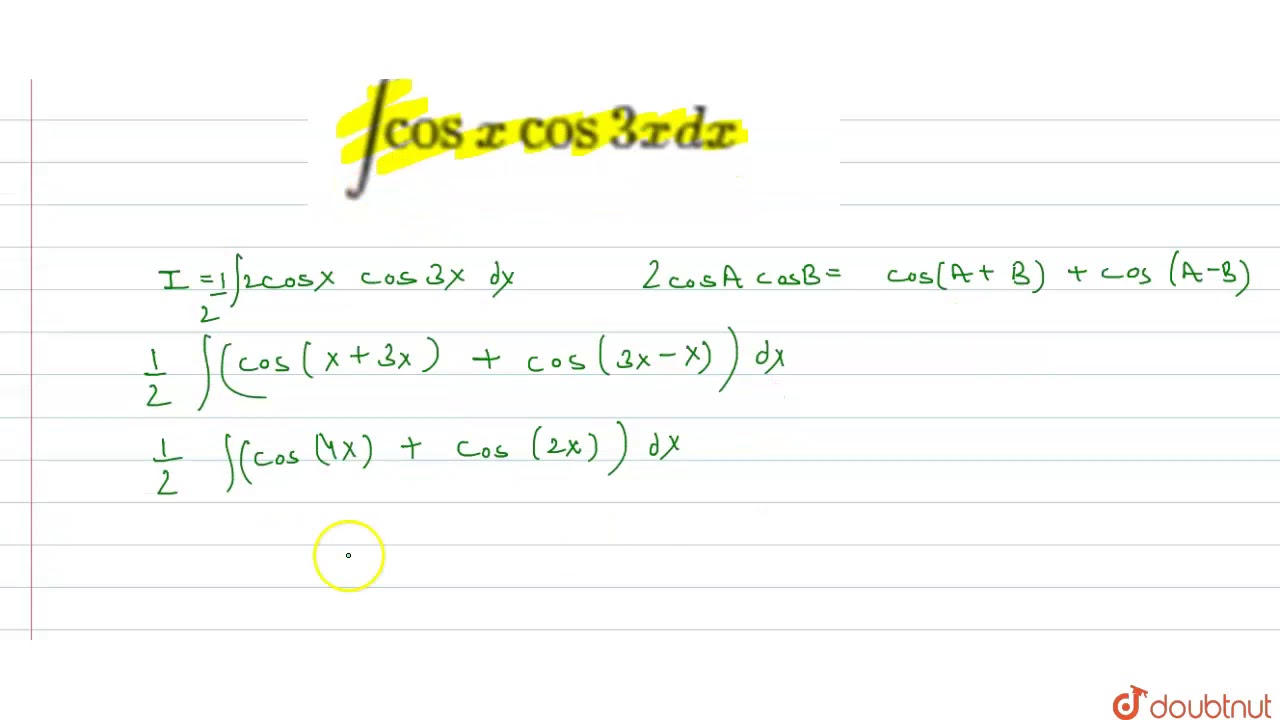 ∫cos x cos 3x dx
I = 1/2 ∫2cosx cos 3x dx 2 cosA cosB = cos(A + B) + cos (A-B)
1/2 ∫(cos(x+3x) + cos(3x-x)) dx
1/2 ∫(cos(4x) + cos(2x)) dx
doubtnut